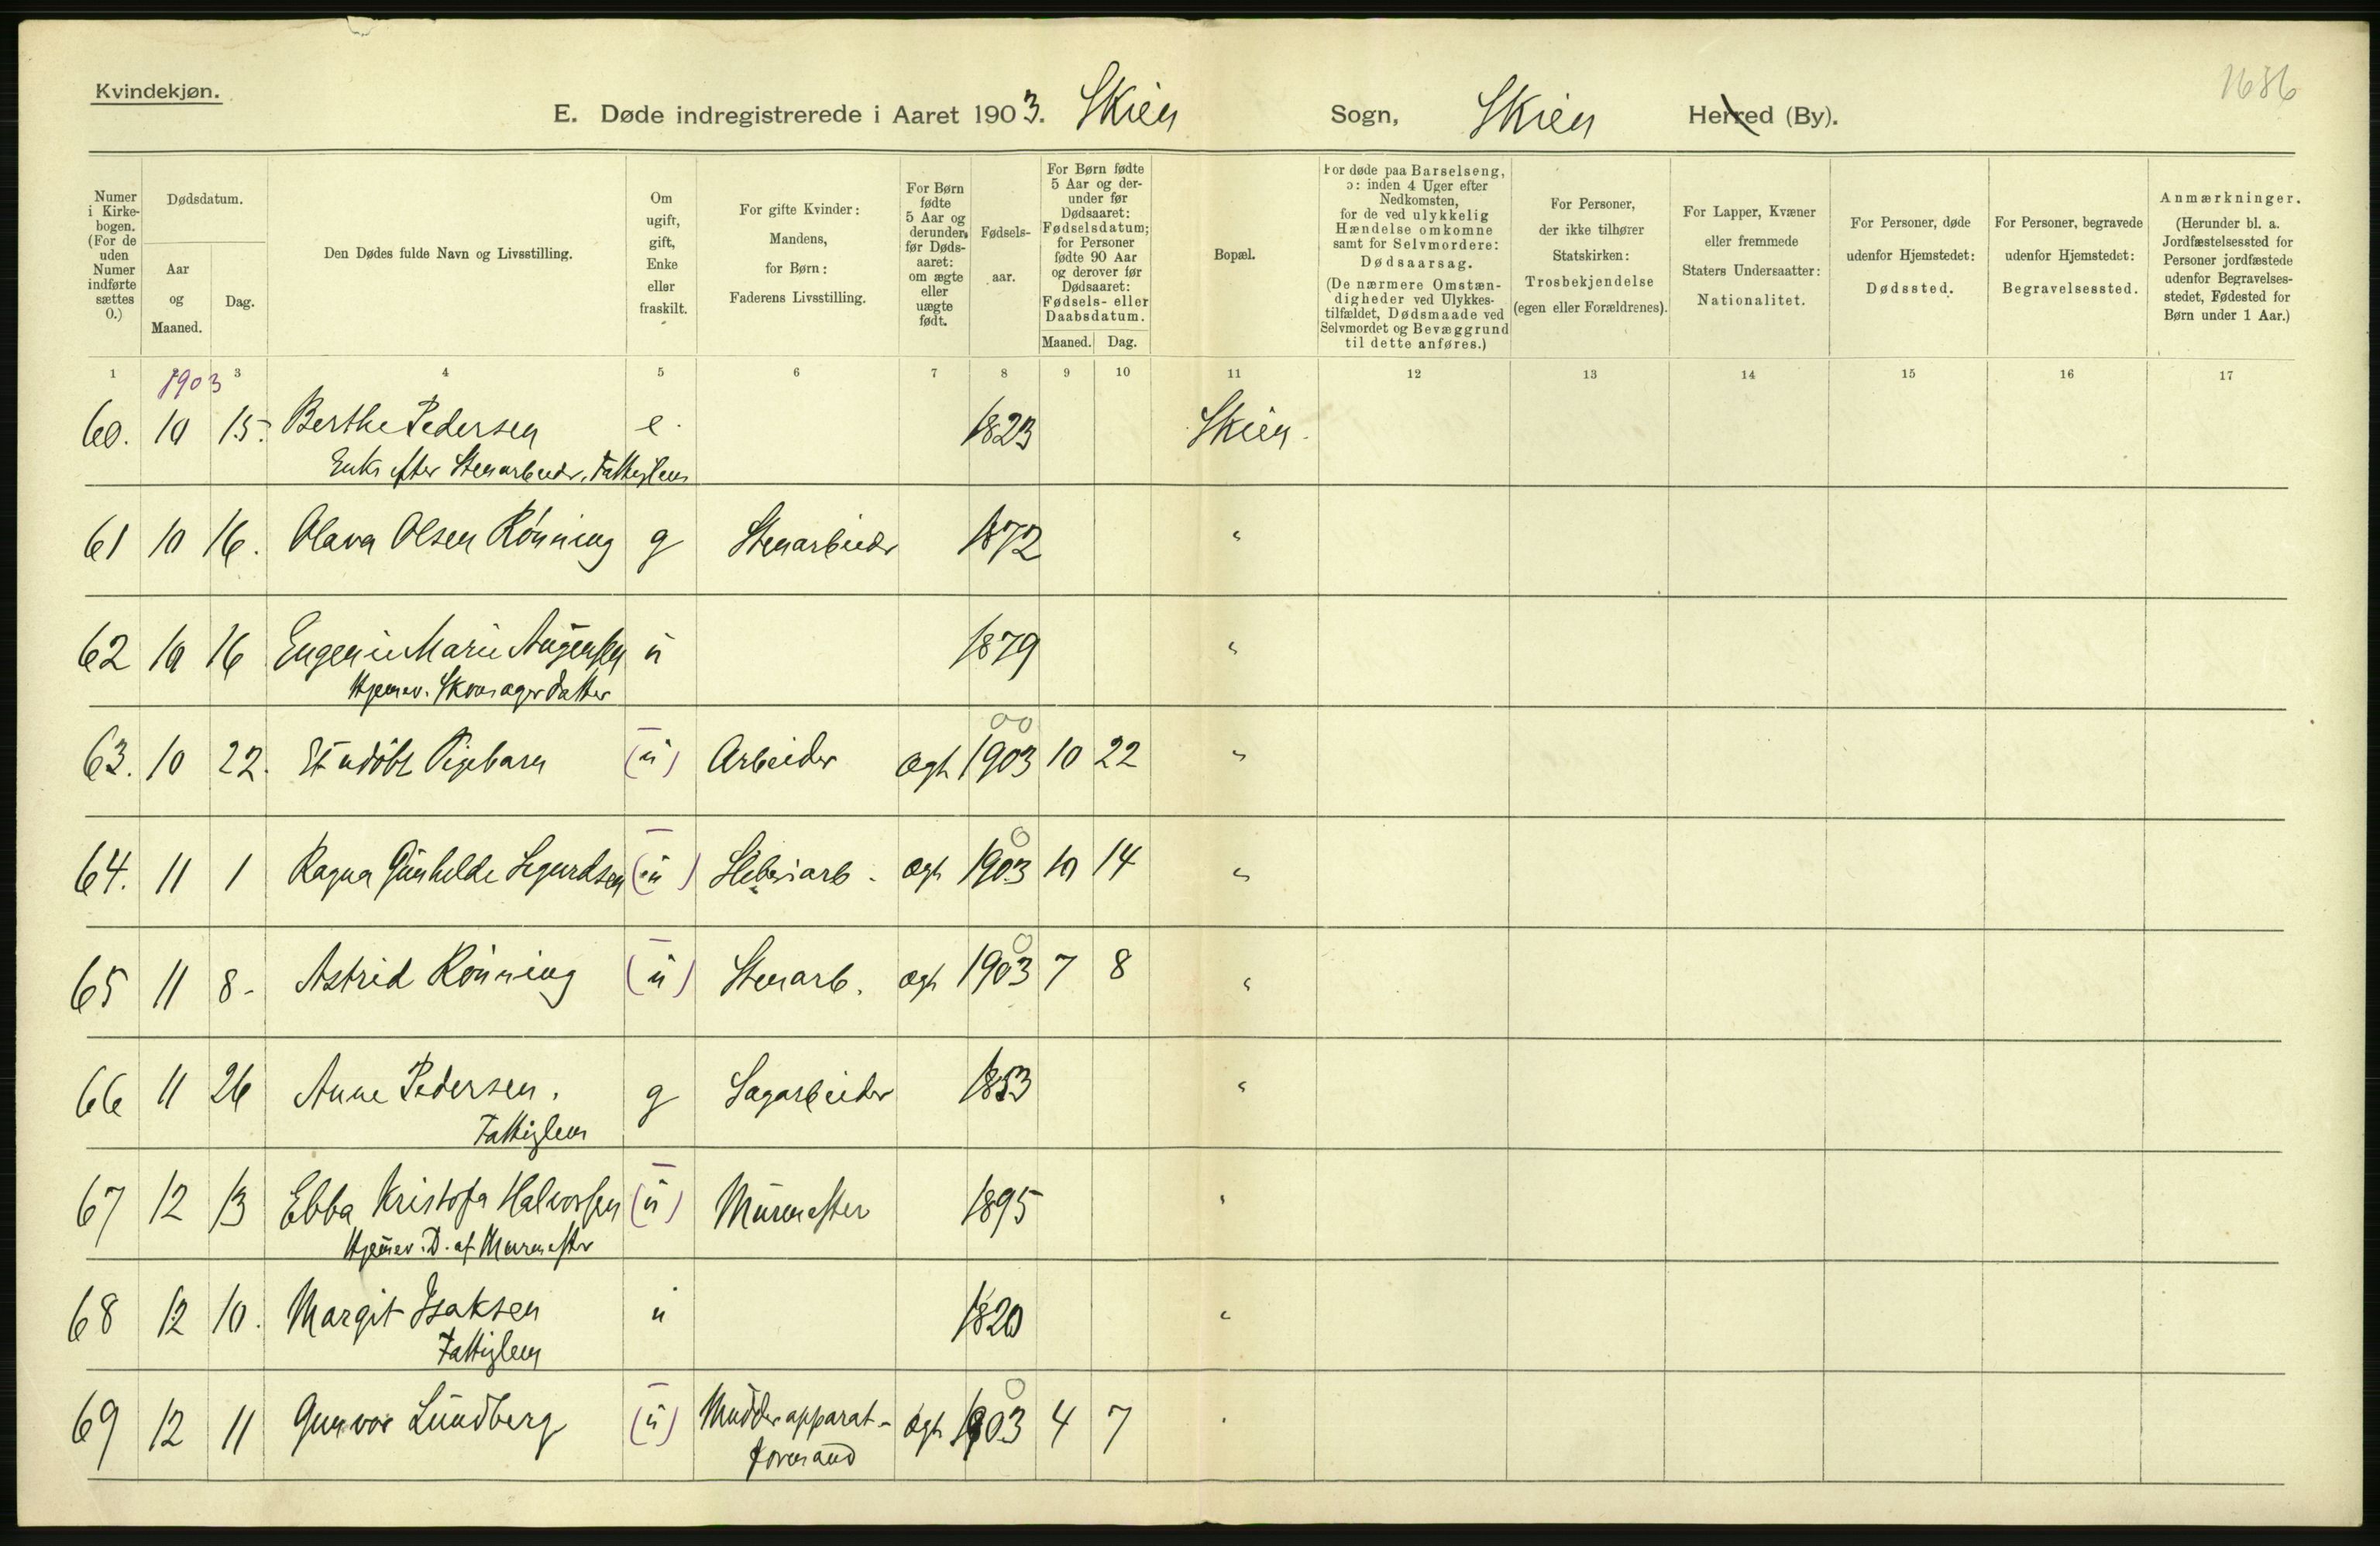 Kvindekjøn.
1686
E. Døde indregistrerede i Aaret 1903. Skien Sogn, Skien Herred (By).
Numer i Kirke-bogen. (For de uden Numer indførte sættes 0.)
Dødsdatum.
Aar og Maaned.
Dag.
Den Dødes fulde Navn og Livsstilling.
Om ugift, gift, Enke eller fraskilt.
For gifte Kvinder: Mandens, for Børn: Faderens Livsstilling.
For Børn fødte 5 Aar og derunder før Døds-aaret: om ægte eller uægte født.
Fødsels-aar.
For Børn fødte 5 Aar og der-under før Dødsaaret: Fødselsdatum; for Personer fødte 90 Aar og derover før Dødsaaret: Fødsels- eller Daabsdatum.
Maaned. Dag.
Bopæl.
For døde paa Barselseng, ɔ: inden 4 Uger efter Nedkomsten, for de ved ulykkelig Hændelse omkomne samt for Selvmordere: Dødsaarsag. (De nærmere Omstæn-digheder ved Ulykkes-tilfældet, Dødsmaade ved Selvmordet og Bevæggrund til dette anføres.)
For Personer, der ikke tilhører Statskirken: Trosbekjendelse (egen eller Forældrenes).
For Lapper, Kvæner eller fremmede Staters Undersaatter: Nationalitet.
For Personer, døde udenfor Hjemstedet: Dødssted.
For Personer, begravede udenfor Hjemstedet: Begravelsessted.
Anmærkninger. (Herunder bl. a. Jordfæstelsessted for Personer jordfæstede udenfor Begravelses-stedet, Fødested for Børn under 1 Aar.)
1 3 4 5 6 7 8 9 10 11 12 13 14 15 16 17
1903
60. 10 15. Berthe Pedersen e. 1823 Skien.
Enke efter Stenarbeider, Fattiglem
61 10 16. Olava Olsen Rönning g Stenarbeider 1872 "
62 10 16 Eugenie Marie Augensen u 1879 "
Hjemmev. Skomagerdatter
00
63. 10 22. Et udöbt Pigebarn (u) Arbeider ægt 1903 10 22 "
0
64. 11 1 Ragna Gunhilde Sigurdsen (u) Sliberiarb. ægt 1903 10 14 "
0
65 11 8 - Astrid Rönning (u) Stenarb. ægt 1903 7 8 "
66 11 26 Anne Pedersen. g Sagarbeider 1853 "
Fattiglem
67 12 13 Ebba Kristofa Halvorsen (u) Murmester 1895 "
Hjemmev. D. af Murmester
68 12 10. Margit Isaksen u 1820 "
Fattiglem
0
69 12 11 Gunvor Lundberg (u) Mudderapparat- ægt 1903 4 7 "
formand